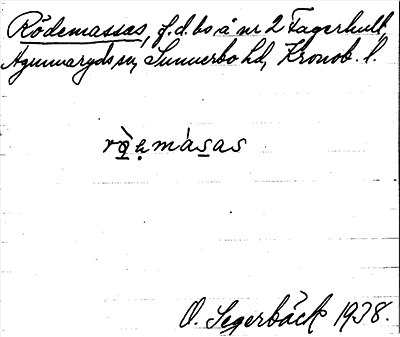 Rödemassas, f.d. bs å nr 2 Fagerhult,
Agunnaryds sn, Sunnerbo hd, Kronob. l.
O. Segerbäck 1938.